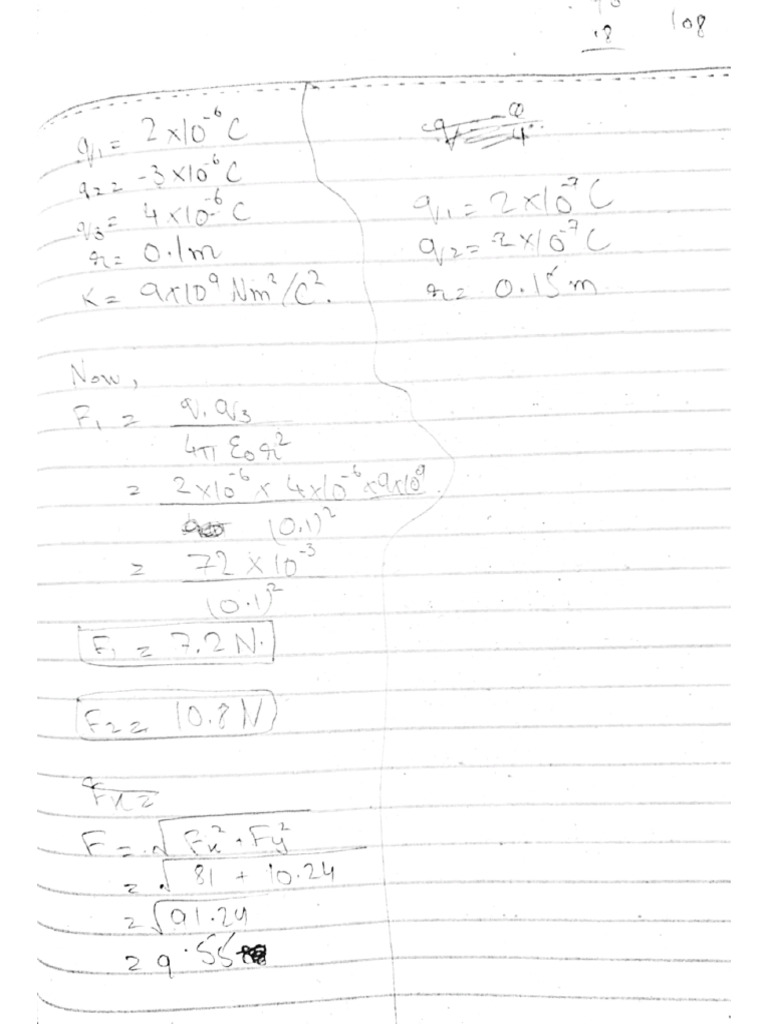 .8 108
q₁ = 2×10⁻⁶ C
q₂ = -3×10⁻⁶ C
q₃ = 4×10⁻⁶ C
r = 0.1m
K = 9×10⁹ Nm²/C².
q₁ = 2×10⁻⁷ C
q₂ = 2×10⁻⁷ C
r = 0.15m
Now,
F₁ = q₁ q₃ / 4π ε₀ r²
= 2×10⁻⁶ × 4×10⁻⁶ ×9×10⁹ / (0.1)²
= 72 × 10⁻³ / (0.1)²
F₁ = 7.2 N.
F₂ = 10.8 N
Fx =
F = √Fx² + Fy²
= √81 + 10.24
= √91.24
= 9.55